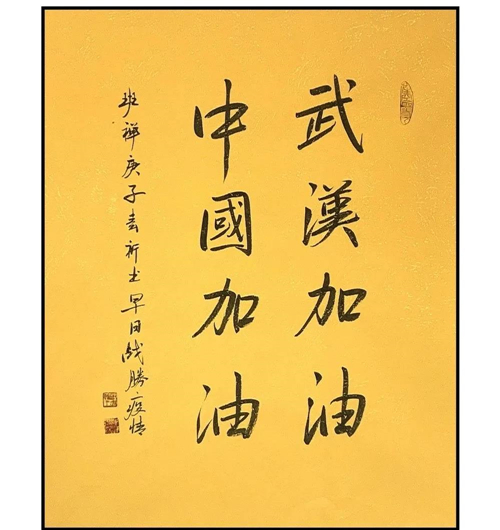 武漢加油
中國加油
班禅庚子春祈书早日战勝疫情